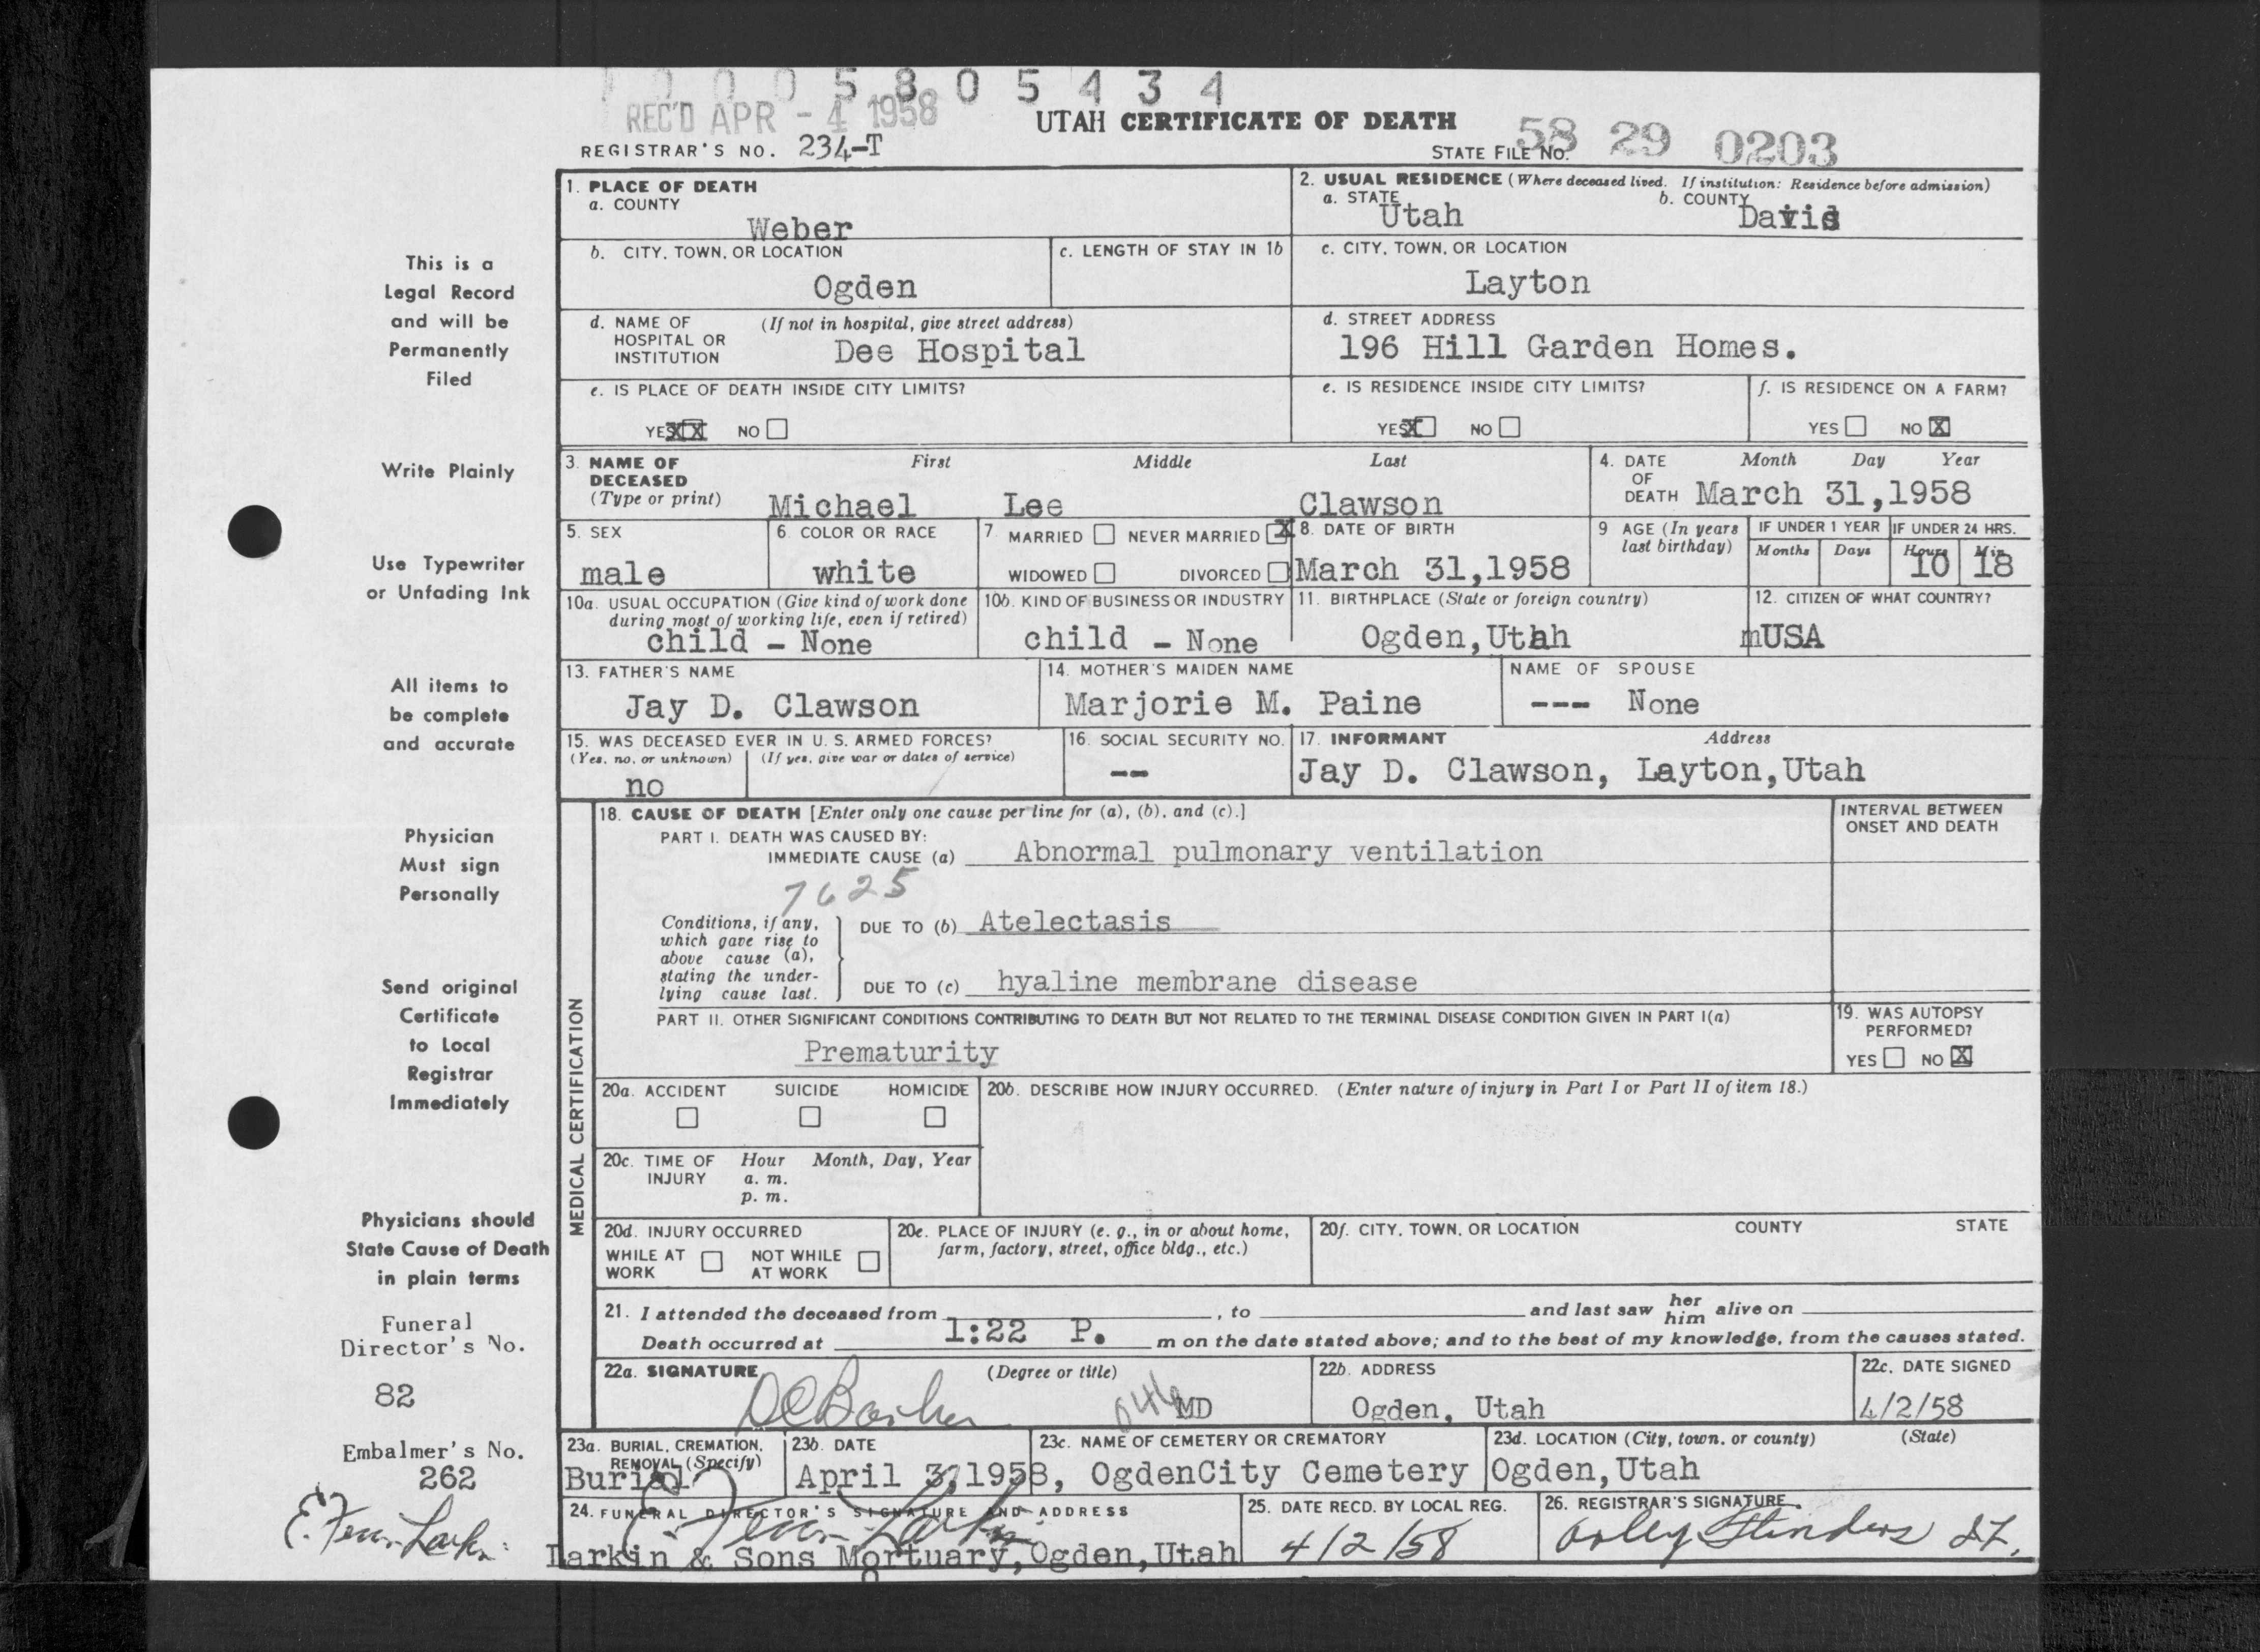 1 0 0 0 5 8 0 5 4 3 4
REC'D APR - 4 1958
UTAH CERTIFICATE OF DEATH
REGISTRAR'S NO. 234-T
STATE FILE NO. 58 29 0203
1. PLACE OF DEATH
a. COUNTY
Weber
2. USUAL RESIDENCE (Where deceased lived. If institution: Residence before admission)
a. STATE Utah b. COUNTY Davis
b. CITY, TOWN, OR LOCATION
Ogden
c. LENGTH OF STAY IN 1b
c. CITY, TOWN, OR LOCATION
Layton
d. NAME OF (If not in hospital, give street address)
HOSPITAL OR
INSTITUTION Dee Hospital
d. STREET ADDRESS
196 Hill Garden Homes.
e. IS PLACE OF DEATH INSIDE CITY LIMITS?
YES XX NO
e. IS RESIDENCE INSIDE CITY LIMITS?
YES X NO
f. IS RESIDENCE ON A FARM?
YES NO X
3. NAME OF First Middle Last
DECEASED
(Type or print) Michael Lee Clawson
4. DATE Month Day Year
OF
DEATH March 31,1958
5. SEX
male
6. COLOR OR RACE
white
7. MARRIED NEVER MARRIED X
WIDOWED DIVORCED
8. DATE OF BIRTH
March 31,1958
9 AGE (In years
last birthday)
IF UNDER 1 YEAR
Months Days
IF UNDER 24 HRS.
Hours Min
10 18
10a. USUAL OCCUPATION (Give kind of work done
during most of working life, even if retired)
child - None
10b. KIND OF BUSINESS OR INDUSTRY
child - None
11. BIRTHPLACE (State or foreign country)
Ogden,Utah
12. CITIZEN OF WHAT COUNTRY?
mUSA
13. FATHER'S NAME
Jay D. Clawson
14. MOTHER'S MAIDEN NAME
Marjorie M. Paine
NAME OF SPOUSE
--- None
15. WAS DECEASED EVER IN U. S. ARMED FORCES?
(Yes, no, or unknown) (If yes, give war or dates of service)
no
16. SOCIAL SECURITY NO.
--
17. INFORMANT Address
Jay D. Clawson, Layton,Utah
MEDICAL CERTIFICATION
18. CAUSE OF DEATH [Enter only one cause per line for (a), (b), and (c).]
INTERVAL BETWEEN
ONSET AND DEATH
PART I. DEATH WAS CAUSED BY:
IMMEDIATE CAUSE (a) Abnormal pulmonary ventilation
7625
Conditions, if any,
which gave rise to
above cause (a),
stating the under-
lying cause last.
DUE TO (b) Atelectasis
DUE TO (c) hyaline membrane disease
PART II. OTHER SIGNIFICANT CONDITIONS CONTRIBUTING TO DEATH BUT NOT RELATED TO THE TERMINAL DISEASE CONDITION GIVEN IN PART I(a)
Prematurity
19. WAS AUTOPSY
PERFORMED?
YES NO X
20a. ACCIDENT SUICIDE HOMICIDE
20b. DESCRIBE HOW INJURY OCCURRED. (Enter nature of injury in Part I or Part II of item 18.)
20c. TIME OF Hour Month, Day, Year
INJURY a. m.
p. m.
20d. INJURY OCCURRED
WHILE AT NOT WHILE
WORK AT WORK
20e. PLACE OF INJURY (e. g., in or about home,
farm, factory, street, office bldg., etc.)
20f. CITY, TOWN, OR LOCATION COUNTY STATE
21. I attended the deceased from , to and last saw her him alive on
Death occurred at 1:22 P. m on the date stated above; and to the best of my knowledge, from the causes stated.
22a. SIGNATURE (Degree or title)
DC Barker MD
22b. ADDRESS
Ogden, Utah
22c. DATE SIGNED
4/2/58
23a. BURIAL, CREMATION,
REMOVAL (Specify)
Burial
23b. DATE
April 3,1958,
23c. NAME OF CEMETERY OR CREMATORY
OgdenCity Cemetery
23d. LOCATION (City, town, or county) (State)
Ogden,Utah
24. FUNERAL DIRECTOR'S SIGNATURE AND ADDRESS
E. Fenn Larkin
Larkin & Sons Mortuary,Ogden,Utah
25. DATE RECD. BY LOCAL REG.
4/2/58
26. REGISTRAR'S SIGNATURE
This is a
Legal Record
and will be
Permanently
Filed
Write Plainly
Use Typewriter
or Unfading Ink
All items to
be complete
and accurate
Physician
Must sign
Personally
Send original
Certificate
to Local
Registrar
Immediately
Physicians should
State Cause of Death
in plain terms
Funeral
Director's No.
82
Embalmer's No.
262
E. Fenn Larkin